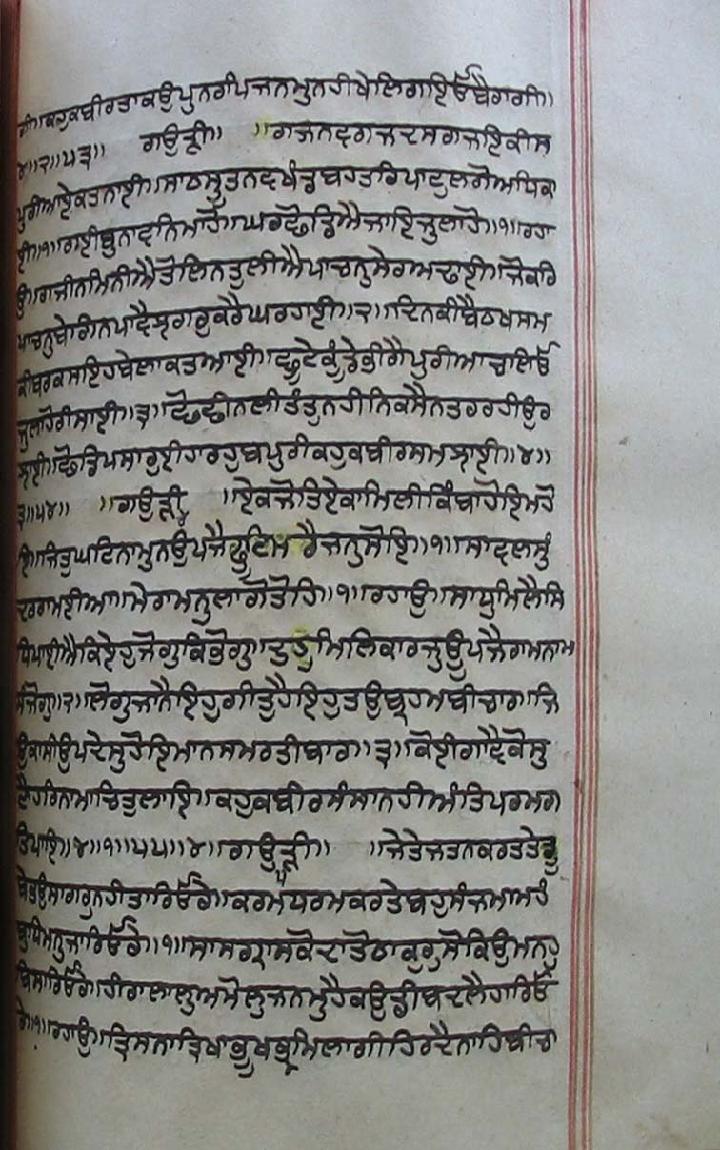 ਗੀ॥ਕਹੁਕਬੀਰਤਾਕਉਪੁਨਰਪਿਜਨਮੁਨਹੀਖੇਲਿਗਇਓਬੈਰਾਗੀ॥
੪॥੨॥੫੩॥ ਗਉੜੀ॥ ॥ਗਜਨਵਗਜਦਸਗਜਇਕੀਸ
ਪੁਰੀਆਏਕਤਨਾਈ॥ਸਾਠਸੂਤਨਵਖੰਡਬਹਤਰਿਪਾਟੁਲਗੋਅਧਿਕਾ
ਈ॥੧॥ਗਈਬੁਨਾਵਨਿਮਾਹੋ॥ਘਰਛੋਡਿਐਜਾਇਜੁਲਾਹੋ॥੧॥ਰਹਾ
ਉ॥ਗਜੀਨਮਿਨੀਐਤੋਲਿਨਤੁਲੀਐਪਾਚਨੁਸੇਰਅਢਾਈ॥ਜੋਕਰਿ
ਪਾਚਨੁਬੇਗਿਨਪਾਵੈਝਗਰੁਕਰੈਘਰਹਾਈ॥੨॥ਦਿਨਕੀਬੈਠਖਸਮ
ਕੀਬਰਕਸਇਹਬੇਲਾਕਤਆਈ॥ਛੂਟੇਕੂੰਡੇਭੀਗੈਪੁਰੀਆਚਲਿਓ
ਜੁਲਾਹੋਰੀਸਾਈ॥੩॥ਛੋਛੀਨਲੀਤੰਤੁਨਹੀਨਿਕਸੈਨਤਰਰਹੀਉਰ
ਝਾਈ॥ਛੋਡਿਪਸਾਰੁਈਹਾਰਹੁਬਪੁਰੀਕਹੁਕਬੀਰਸਮਝਾਈ॥੪॥
੩॥੫੪॥ ॥ਗਉੜੀ ॥ਏਕਜੋਤਿਏਕਾਮਿਲੀਕਿੰਬਾਹੋਇਮਹੋ
ਇ॥ਜਿਤੁਘਟਿਨਾਮੁਨਉਪਜੈਫੂਟਿਮਰੈਜਨੁਸੋਇ॥੧॥ਸਾਵਲਸੁੰ
ਦਰਰਾਮਈਆ॥ਮੇਰਾਮਨੁਲਾਗੋਤੋਹਿ॥੧॥ਰਹਾਉ॥ਸਾਧੁਮਿਲੈਸਿ
ਧਿਪਾਈਐਕਿਏਹੁਜੋਗੁਕਿਭੋਗੁ॥ਦੁਹੁਮਿਲਿਕਾਰਜੁਊਪਜੈਰਾਮਨਾਮ
ਸੰਜੋਗੁ॥੨॥ਲੋਗੁਜਾਨੈਇਹੁਗੀਤੁਹੈਇਹੁਤਉਬ੍ਰਹਮਬੀਚਾਰ॥ਜਿ
ਉਕਾਸੀਉਪਦੇਸੁਹੋਇਮਾਨਸਮਰਤੀਬਾਰ॥੩॥ਕੋਈਗਾਵੈਕੋਸੁ
ਣੈਹਰਿਨਾਮਾਚਿਤੁਲਾਇ॥ਕਹੁਕਬੀਰਸੰਸਾਨਹੀਅੰਤਿਪਰਮਗ
ਤਿਪਾਇ॥੪॥੧॥੫੫॥੪॥ਗਉੜੀ॥ ॥ਜੇਤੇਜਤਨਕਰਤਤੇਡੂ
ਬੇਭਉਸਾਗਰੁਨਹੀਤਾਰਿਓਰੇ॥ਕਰਮਧਰਮਕਰਤੇਬਹੁਸੰਜਮਅਹੰ
ਬੁਧਿਮਨੁਜਾਰਿਓਰੇ॥੧॥ਸਾਸਗ੍ਰਾਸਕੋਦਾਤੋਠਾਕੁਰੁਸੋਕਿਉਮਨਹੁ
ਬਿਸਾਰਿਓਰੇ॥ਹੀਰਾਲਾਲੁਅਮੋਲੁਜਨਮੁਹੈਕਉਡੀਬਦਲੈਹਾਰਿਓ
ਰੇ॥੧॥ਰਹਾਉ॥ਤ੍ਰਿਸਨਾਤ੍ਰਿਖਾਭੂਖਭ੍ਰਮਿਲਾਗੀਹਿਰਦੈਨਾਹਿਬੀਚਾ